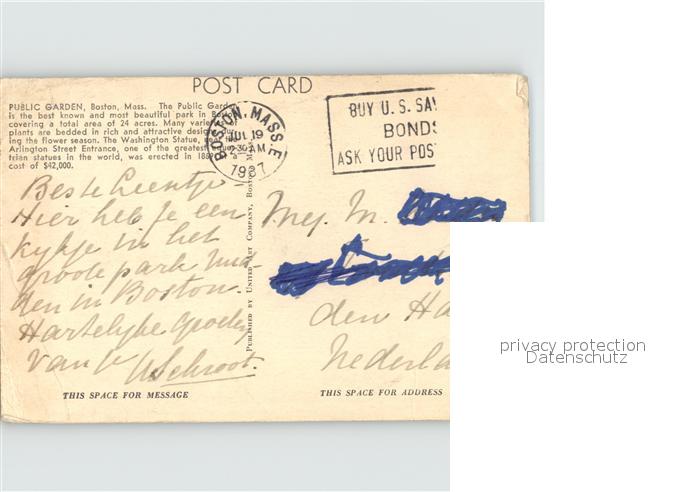 POST CARD
PUBLIC GARDEN, Boston, Mass. The Public Garden
is the best known and most beautiful park in Boston
covering a total area of 24 acres. Many varieties of
plants are bedded in rich and attractive designs dur-
ing the flower season. The Washington Statue, near the
Arlington Street Entrance, one of the greatest eques-
trian statues in the world, was erected in at a
cost of $42,000.
BOSTON, MASS.
JUL 19
230 AM
BUY U.S. SAV
BONDS
ASK YOUR POS
Beste Leentje
Hier heb je een
kykje in het
groote park mid-
den in Boston.
Hartelyke groeten
van
Mej. M.
den Ha
Nederla
PUBLISHED BY UNITED ART COMPANY, BOSTON, MASS.
THIS SPACE FOR MESSAGE
THIS SPACE FOR ADDRESS
privacy protection
Datenschutz